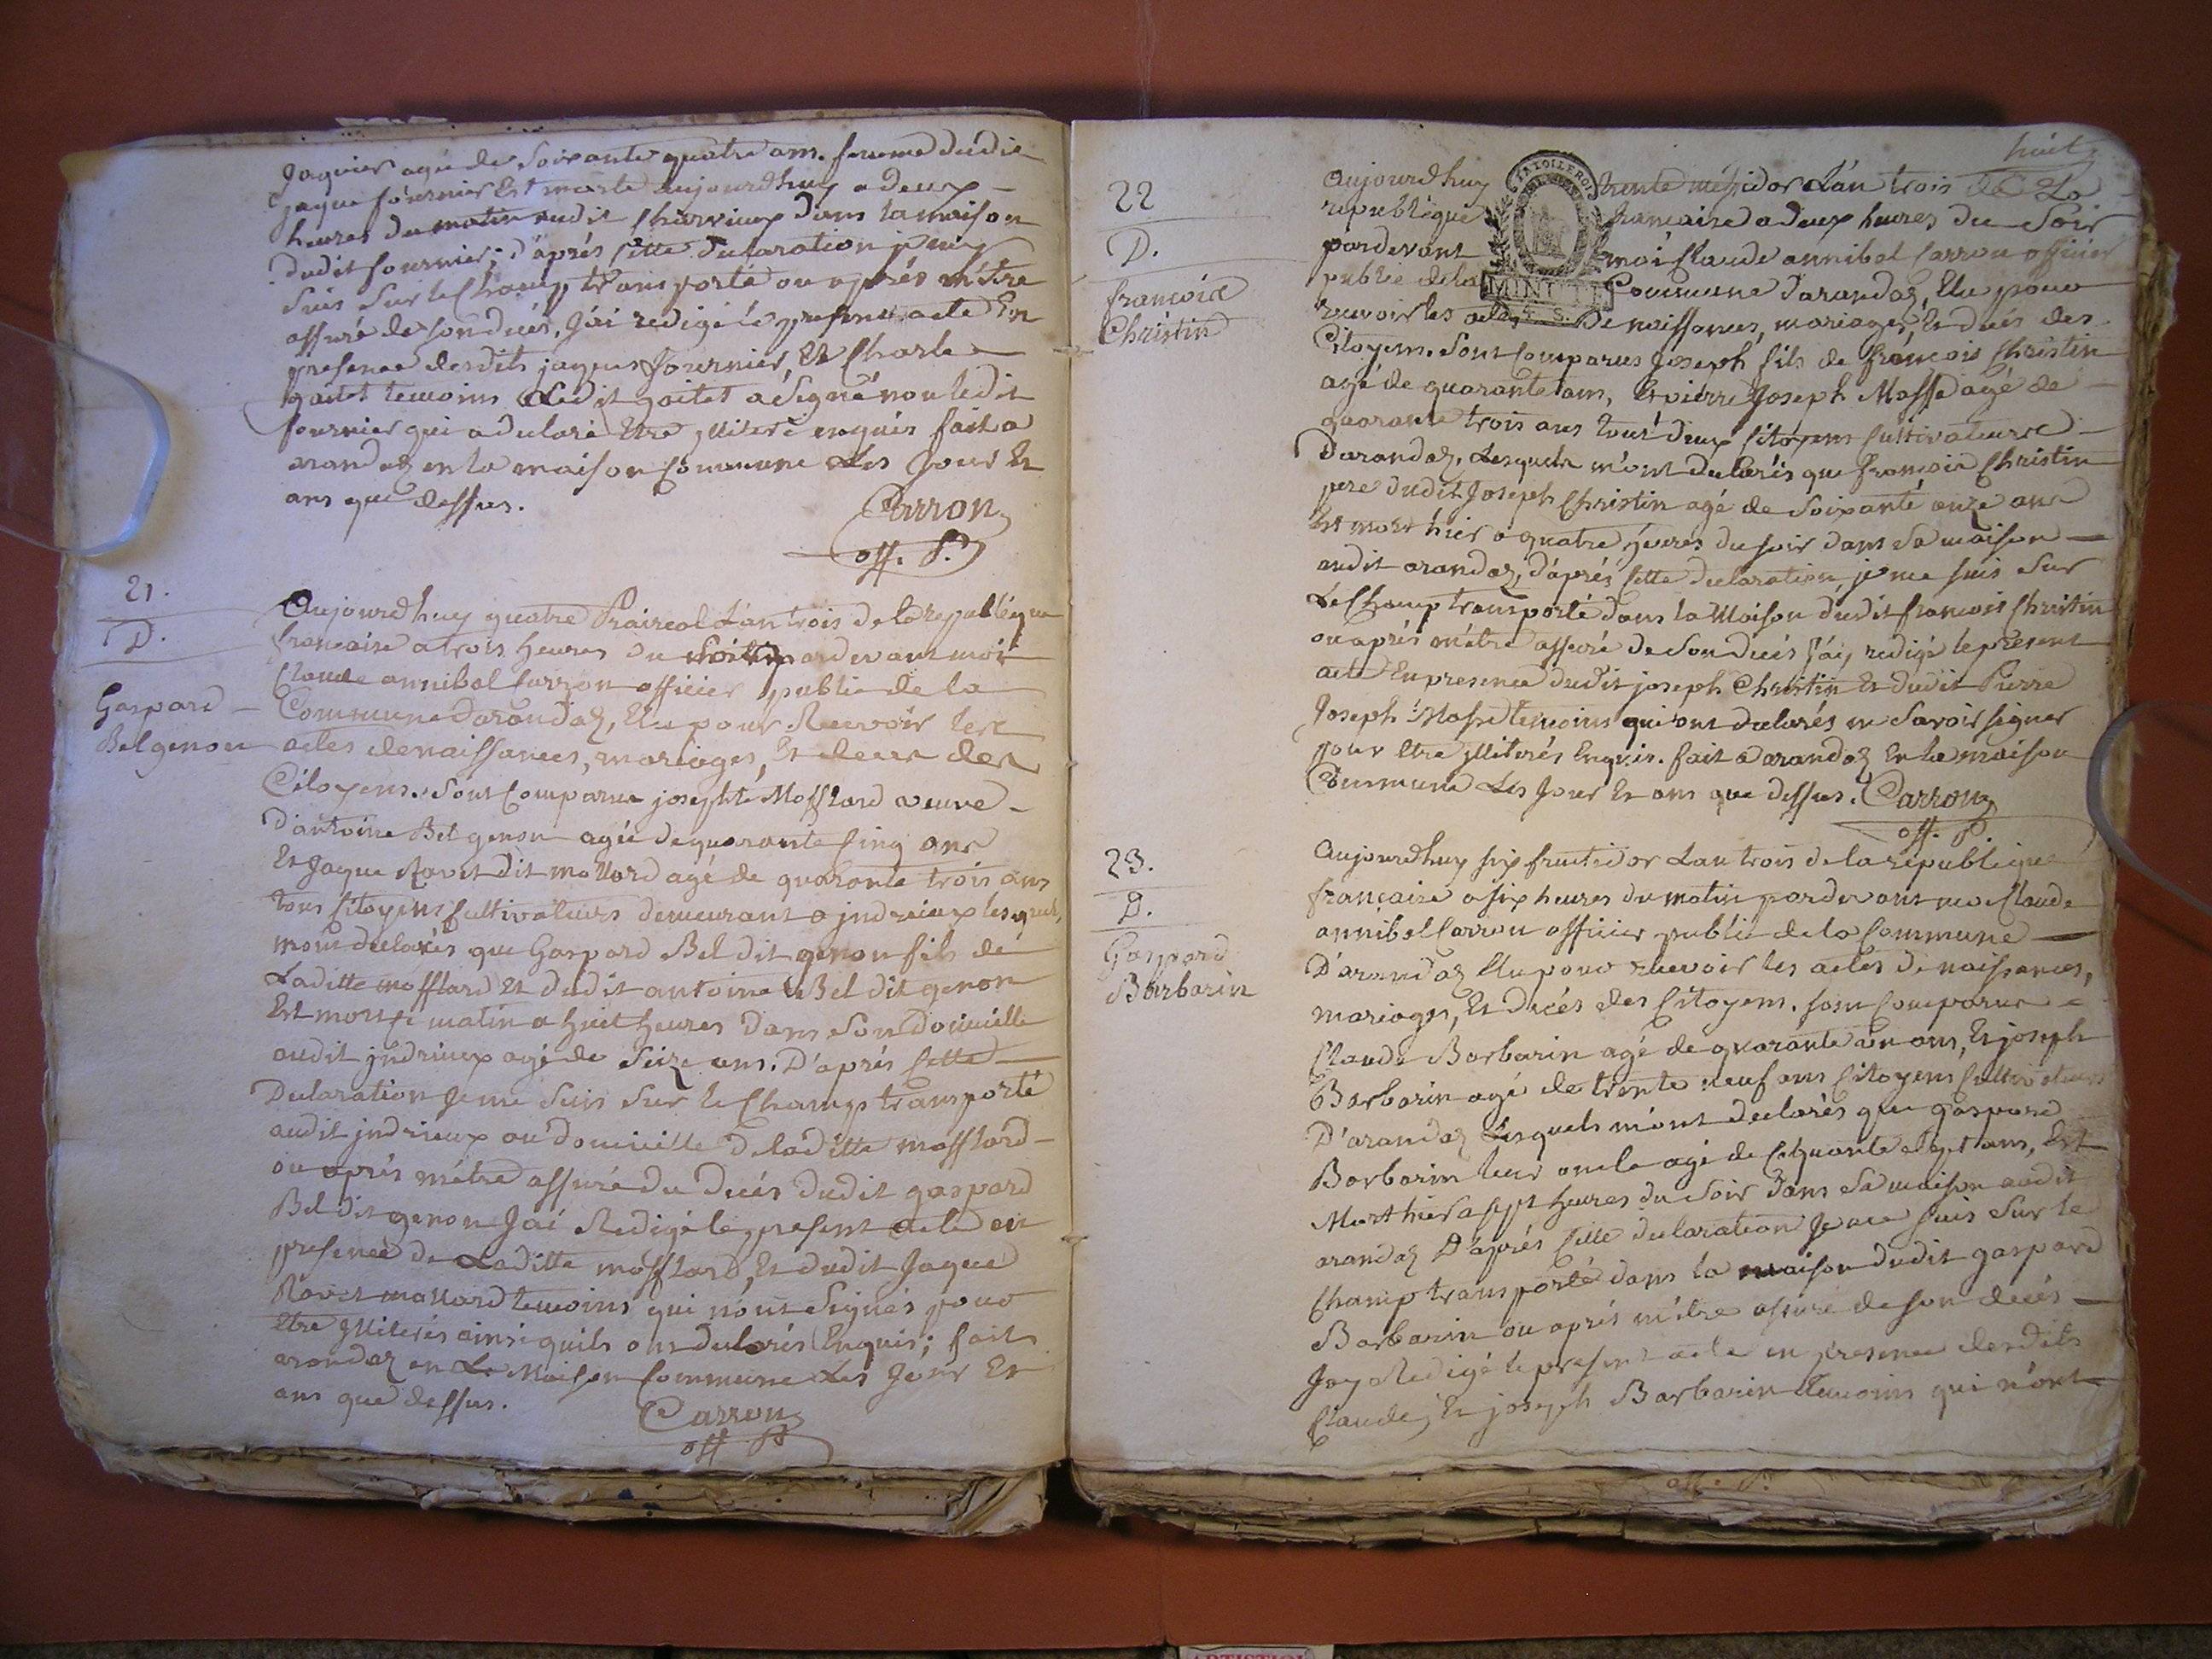 Jaquier agée de Soixante quatre ans. femme dudit
Jaque fournier Est morte aujourdhuy a deux
heures du matin audit Charvieux dans la maison
dudit fournier; d'aprés Cette declaration je me
suis sur le Champ transporté ou aprés m'étre
assuré de son decés, J'ai redigé le present acte En
presence desdits jaques fournier, Et Charle
gaitet temoins Ledit gaitet a Signé non ledit
fournier qui a declaré Etre jlliteré enquis fait a
arandaz en la maison Commune Les Jour Et
ans que dessus.
Carron
off. P.
21.
D.
Gaspard
Bel genon
Aujourdhuy quatre Praireal L'an trois de la republique
francaise a trois heures du Soir pardevant moi
Claude annibal Carron officier public de la
Commune darandaz, Elu pour Recevoir les
actes de naissances, mariages, Et decés des
Citoyens. Sont Comparus josephte Mossland veuve
d'antoine Bel genon agée de quarante Cinq ans
Et Jaque Ravet dit mollard agé de quarante trois ans
tous Citoyens Cultivateurs demeurant a jndrieux lesquels
mont declarés que Gaspard Bel dit genon fils de
Laditte mossland Et dudit antoine Bel dit genon
Est mort ce matin a huit heures dans Son domicille
audit jndrieux agé de Seize ans. D'aprés Cette
Declaration Je me Suis Sur le Champ transporté
audit jndrieux au domicille de laditte mossland
ou aprés m'étre assuré du decés dudit gaspard
Bel dit genon J'ai Redigé le present acte en
presence de Laditte mossland, Et dudit Jaque
Ravet mollard temoins qui n'ont Signés pour
Etre jlliterés ainsi quils ont declarés Enquis; fait
arandaz en La Maison Commune Les Jour Et
ans que dessus.
Carron
off P
huit
22
D.
francois
Christin
LA LOI LE ROI
MINUTE
Aujourdhuy trente méssidor L'an trois de La
republique francaise a deux heures du Soir
pardevant moi Claude annibal Carron officier
public de la Commune darandaz, Elu pour
recevoir les actes de naissances, mariages, Et decés des
Citoyens. Sont Comparus Joseph fils de francois Christin
agé de quarante ans, Et pierre Joseph Masse agé de
quarante trois ans tout deux Citoyens Cultivateurs
Darandaz, Lesquels m'ont declarés que francois Christin
pere dudit Joseph Christin agé de Soixante onze ans
Est mort hier a quatre heures du soir dans Sa maison
audit arandaz, d'aprés Cette declaration je me suis Sur
Le Champ transporté dans la Maison dudit francois Christin
ou aprés m'étre assuré de Son decés J'ai redigé le present
acte En presence dudit joseph Christin Et dudit Pierre
Joseph Masse temoins qui ont declarés ne Savoir signer
pour Etre jlliterés Enquis. fait a arandaz En la maison
Commune Les Jour Et ans que dessus. Carron
off. P.
23.
D.
Gaspard
Barbarin
Aujourdhuy six fructidor L'an trois de la republique
francaise a six heures du matin pardevant moi Claude
annibal Carron officier public de la Commune
D'arandaz Elu pour recevoir les actes de naissances,
mariages, Et decés des Citoyens. sont Comparus
Claude Barbarin agé de quarante un ans, Et joseph
Barbarin agé de trente neuf ans Citoyens Cultivateurs
D'arandaz Lesquels m'ont declarés que gaspard
Barbarin leur oncle agé de Ciquante et sept ans, Est
Mort hier a sept heures du Soir dans Sa maison audit
arandaz D'aprés Cette declaration Je me suis Sur le
Champ transporté dans la maison dudit gaspard
Barbarin ou aprés m'étre assuré de son decés
Jay Redigé le present acte en presence desdits
Claude, Et joseph Barbarin temoins qui n'ont
off. P.